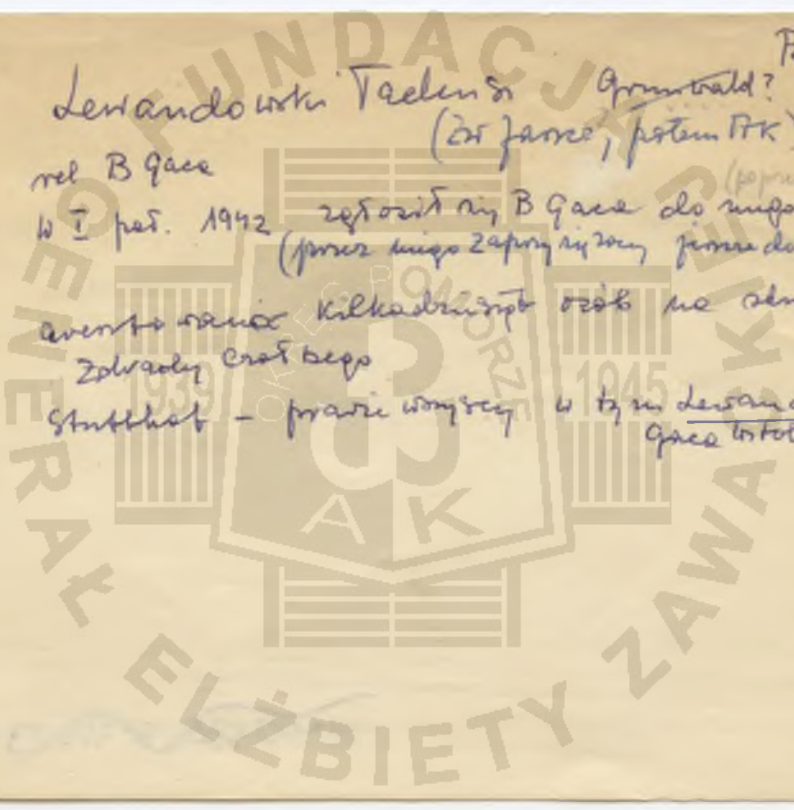 Lewandowski Tadeusz Grunwald?
(Zw Jaszcz, potem AK)
rel B Gaca
w I poł. 1942 zgłosił się B Gaca do niego
(przez niego zaprzysiężony
aresztowania kilkadziesiąt osób na
zdrady
Stutthof – prawie wszyscy w tym Lewand
Gaca Witol
FUNDACJA GENERAŁ ELŻBIETY ZAWACKIEJ
OKRĘG POMORZE
1939 1945
AK